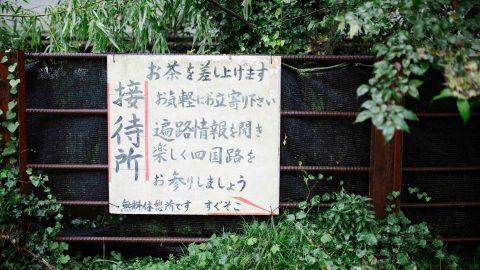 接待所
お茶を差し上げます
お気軽にお立寄り下さい
遍路情報を聞き
楽しく四国路を
お参りしましょう
無料休憩所です すぐそこ